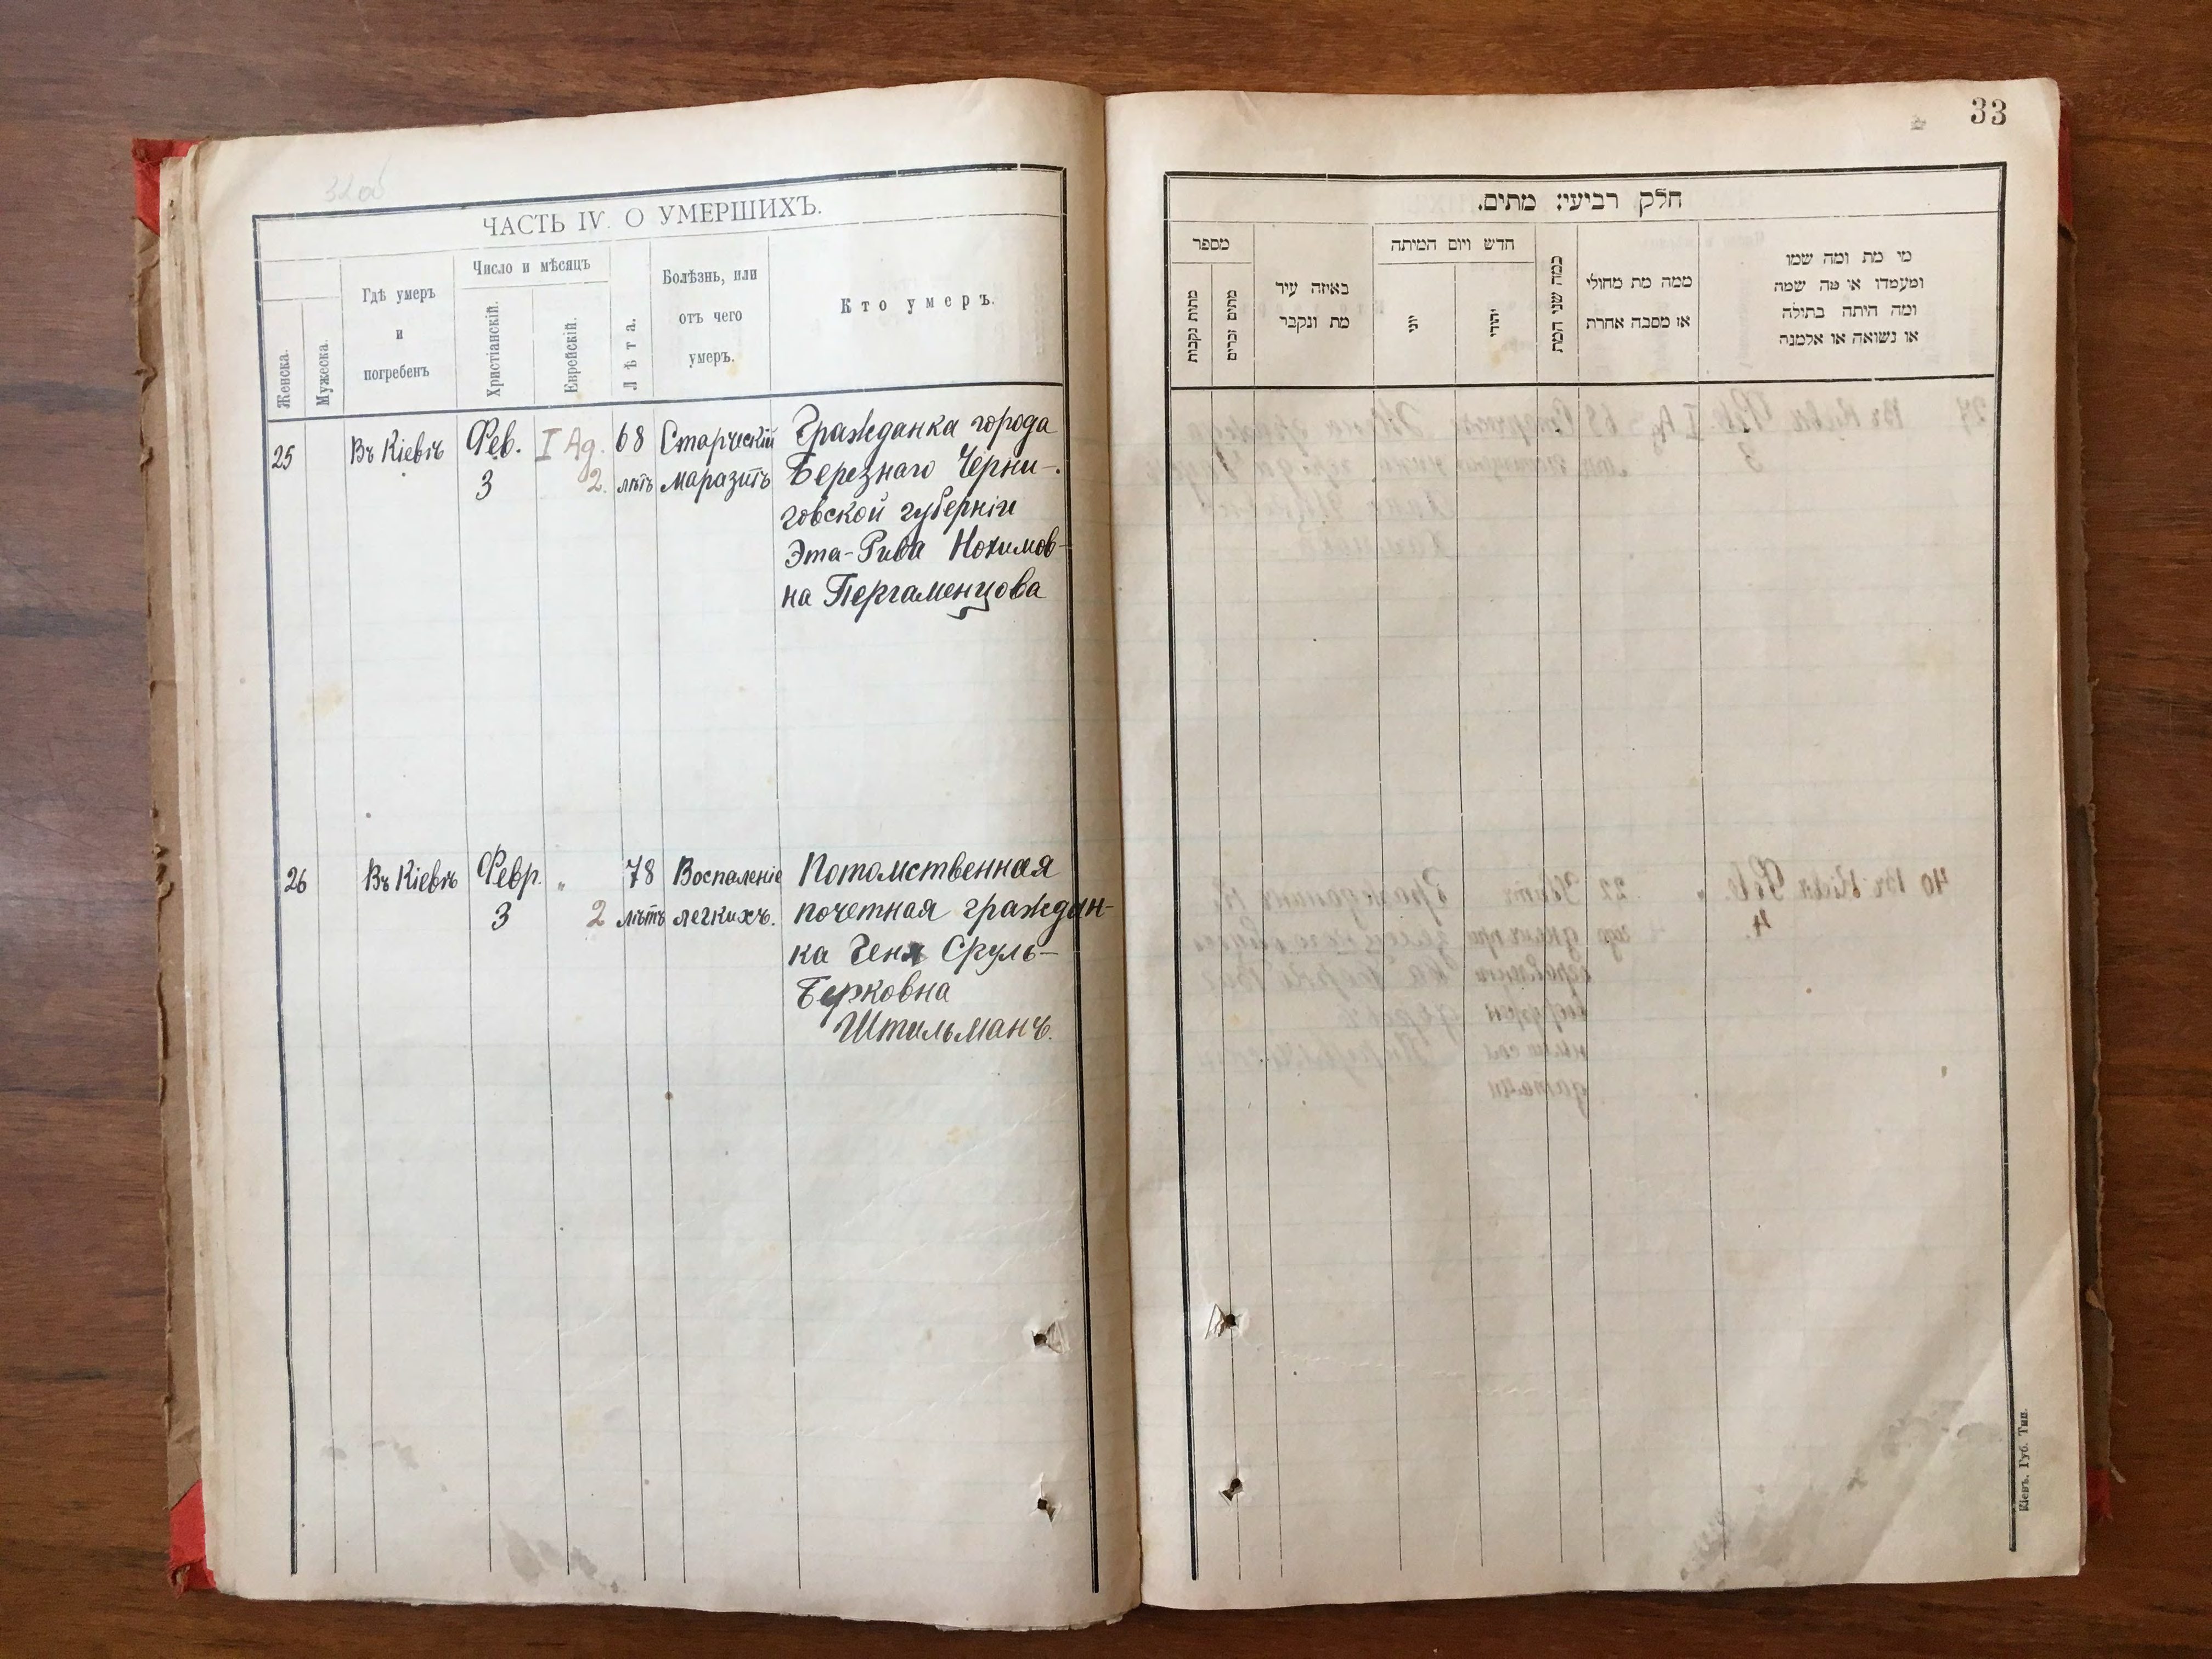 ЧАСТЬ IV. О УМЕРШИХЪ.
Женска.
Мужеска.
Гдѣ умеръ
и
погребенъ
Число и мѣсяцъ
Христіанскій.
Еврейскій.
Лѣта.
Болѣзнь, или
отъ чего
умеръ.
Кто умеръ.
25
Въ Кіевѣ
Фев.
3
I Ад.
2.
68
лѣтъ
Старческій
маразмъ
Гражданка города
Березнаго Черни-
говской губерніи
Эта-Рива Нохимов-
на Пергаменцова
26
Въ Кіевѣ
Февр.
3
"
2
78
лѣтъ
Воспаленіе
легкихъ.
Потомственная
почетная граждан-
ка Геня Сруль-
Берковна
Штильманъ.
33
חלק רביעי: מתים.
מספר
מתות נקבות
מתים זכרים
באיזה עיר
מת ונקבר
חדש ויום המיתה
יוני
יהודי
כמה שני המת
ממה מת מחולי
או מסבה אחרת
מי מת ומה שמו
ומעמדו או מה שמה
ומה היתה בתולה
או נשואה או אלמנה
Кіевъ. Губ. Тип.